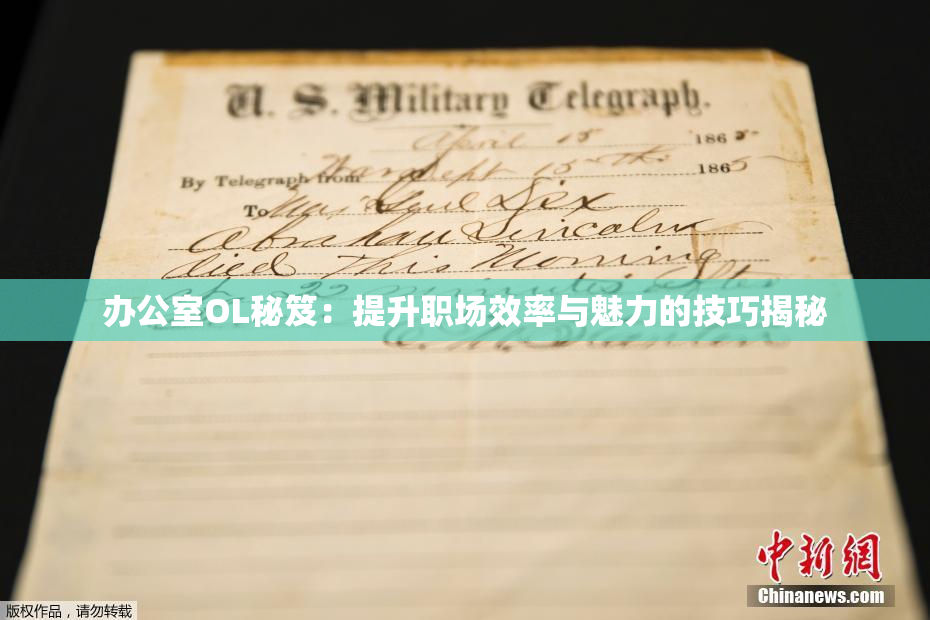 U. S. Military Telegraph.
April 15 1865
By Telegraph from War Dept 15th 1865
To Maj Genl Dix
Abraham Lincoln
died This Morning
22 minutes after
办公室OL秘笈：提升职场效率与魅力的技巧揭秘
中新网
Chinanews.com
版权作品，请勿转载